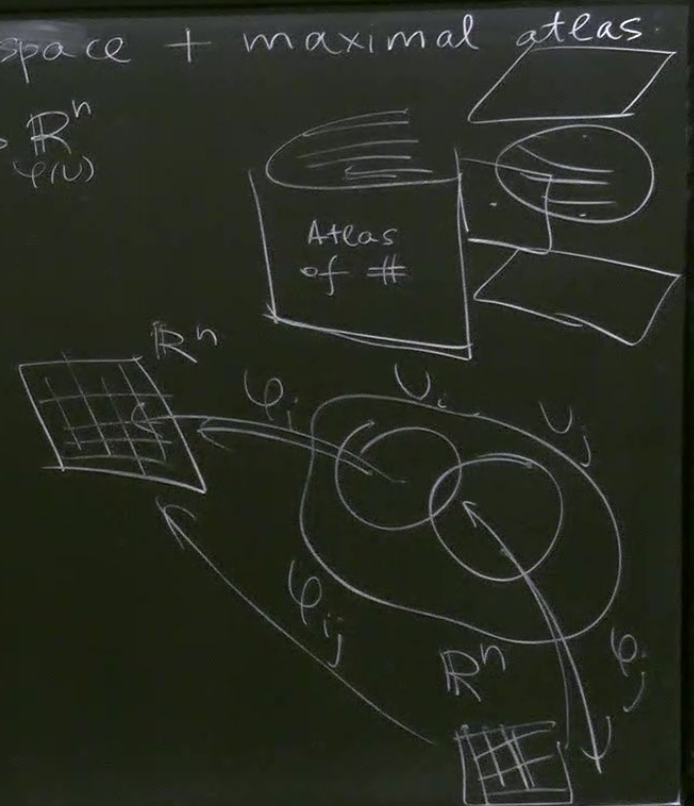 space + maximal atlas
ℝⁿ
φ(U)
Atlas
of #
ℝⁿ
φᵢ
Uᵢ
Uⱼ
φᵢⱼ
ℝⁿ
φⱼ